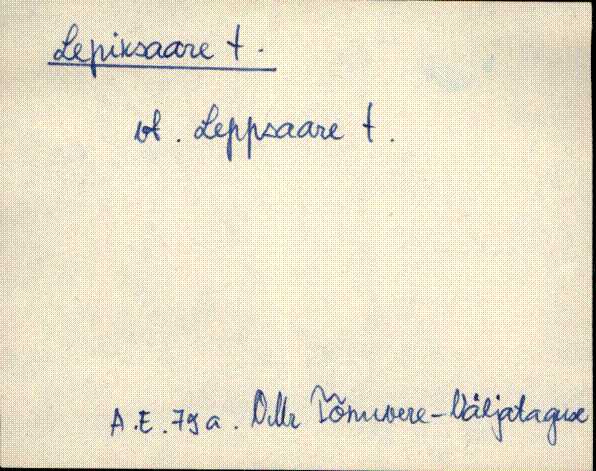 Lepiksaare t.
vt. Leppsaare t.
A.E. 79a. Tõnuvere-Väljataguse